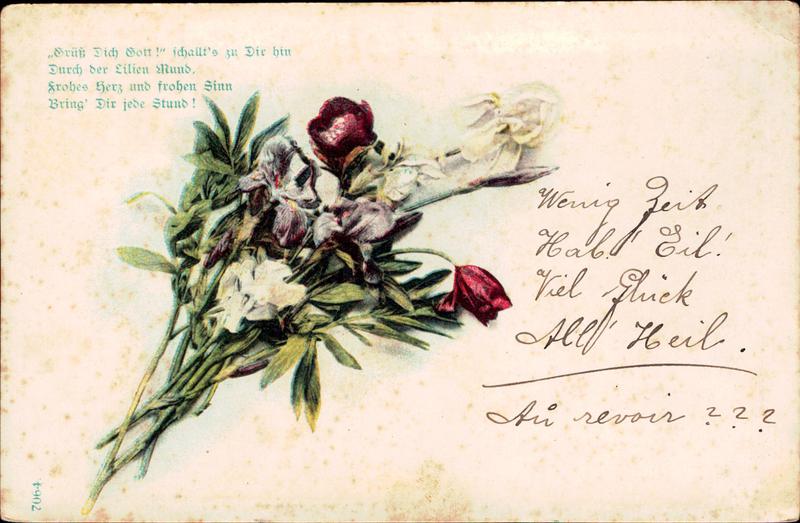 „Grüß Dich Gott!" schallt's zu Dir hin
Durch der Lilien Mund,
Frohes Herz und frohen Sinn
Bring' Dir jede Stund!
Wenig Zeit
Hab' Eil!
Viel Glück
All' Heil.
Au revoir ???
7064